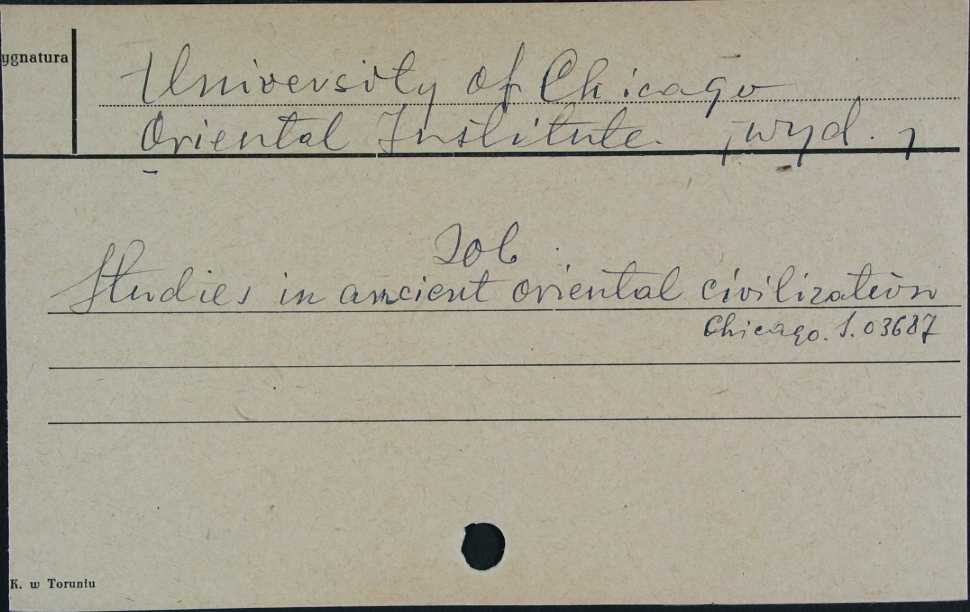 ygnatura
University of Chicago
Oriental Institute. , wyd. ,
Zob.
Studies in ancient oriental civilization
Chicago. S. 03687
K. w Toruniu